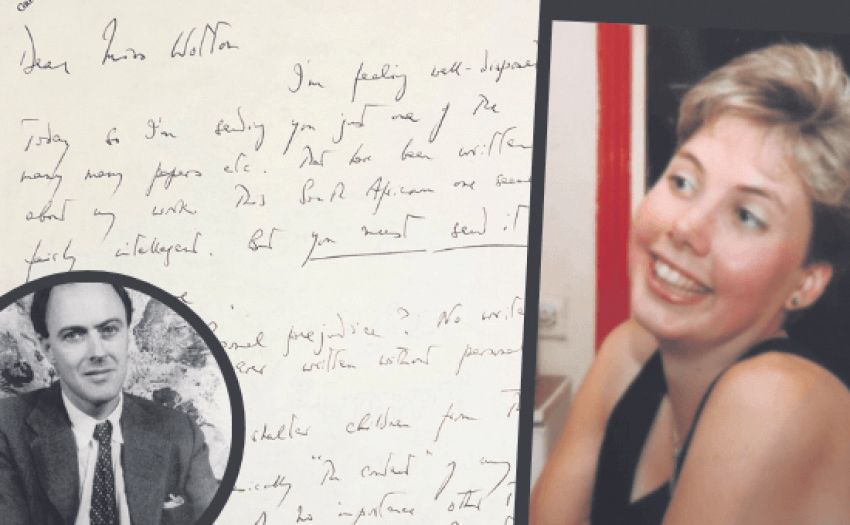 Dear Miss Wolton
I'm feeling well-dispose
Today so I'm sending you just one of the
many many papers etc. that have been written
about my work. This South African one seem
fairly intelligent. But you must send it
prejudice? No write
ever written without person
shelter children from T
"The content" of my
of no importance other t